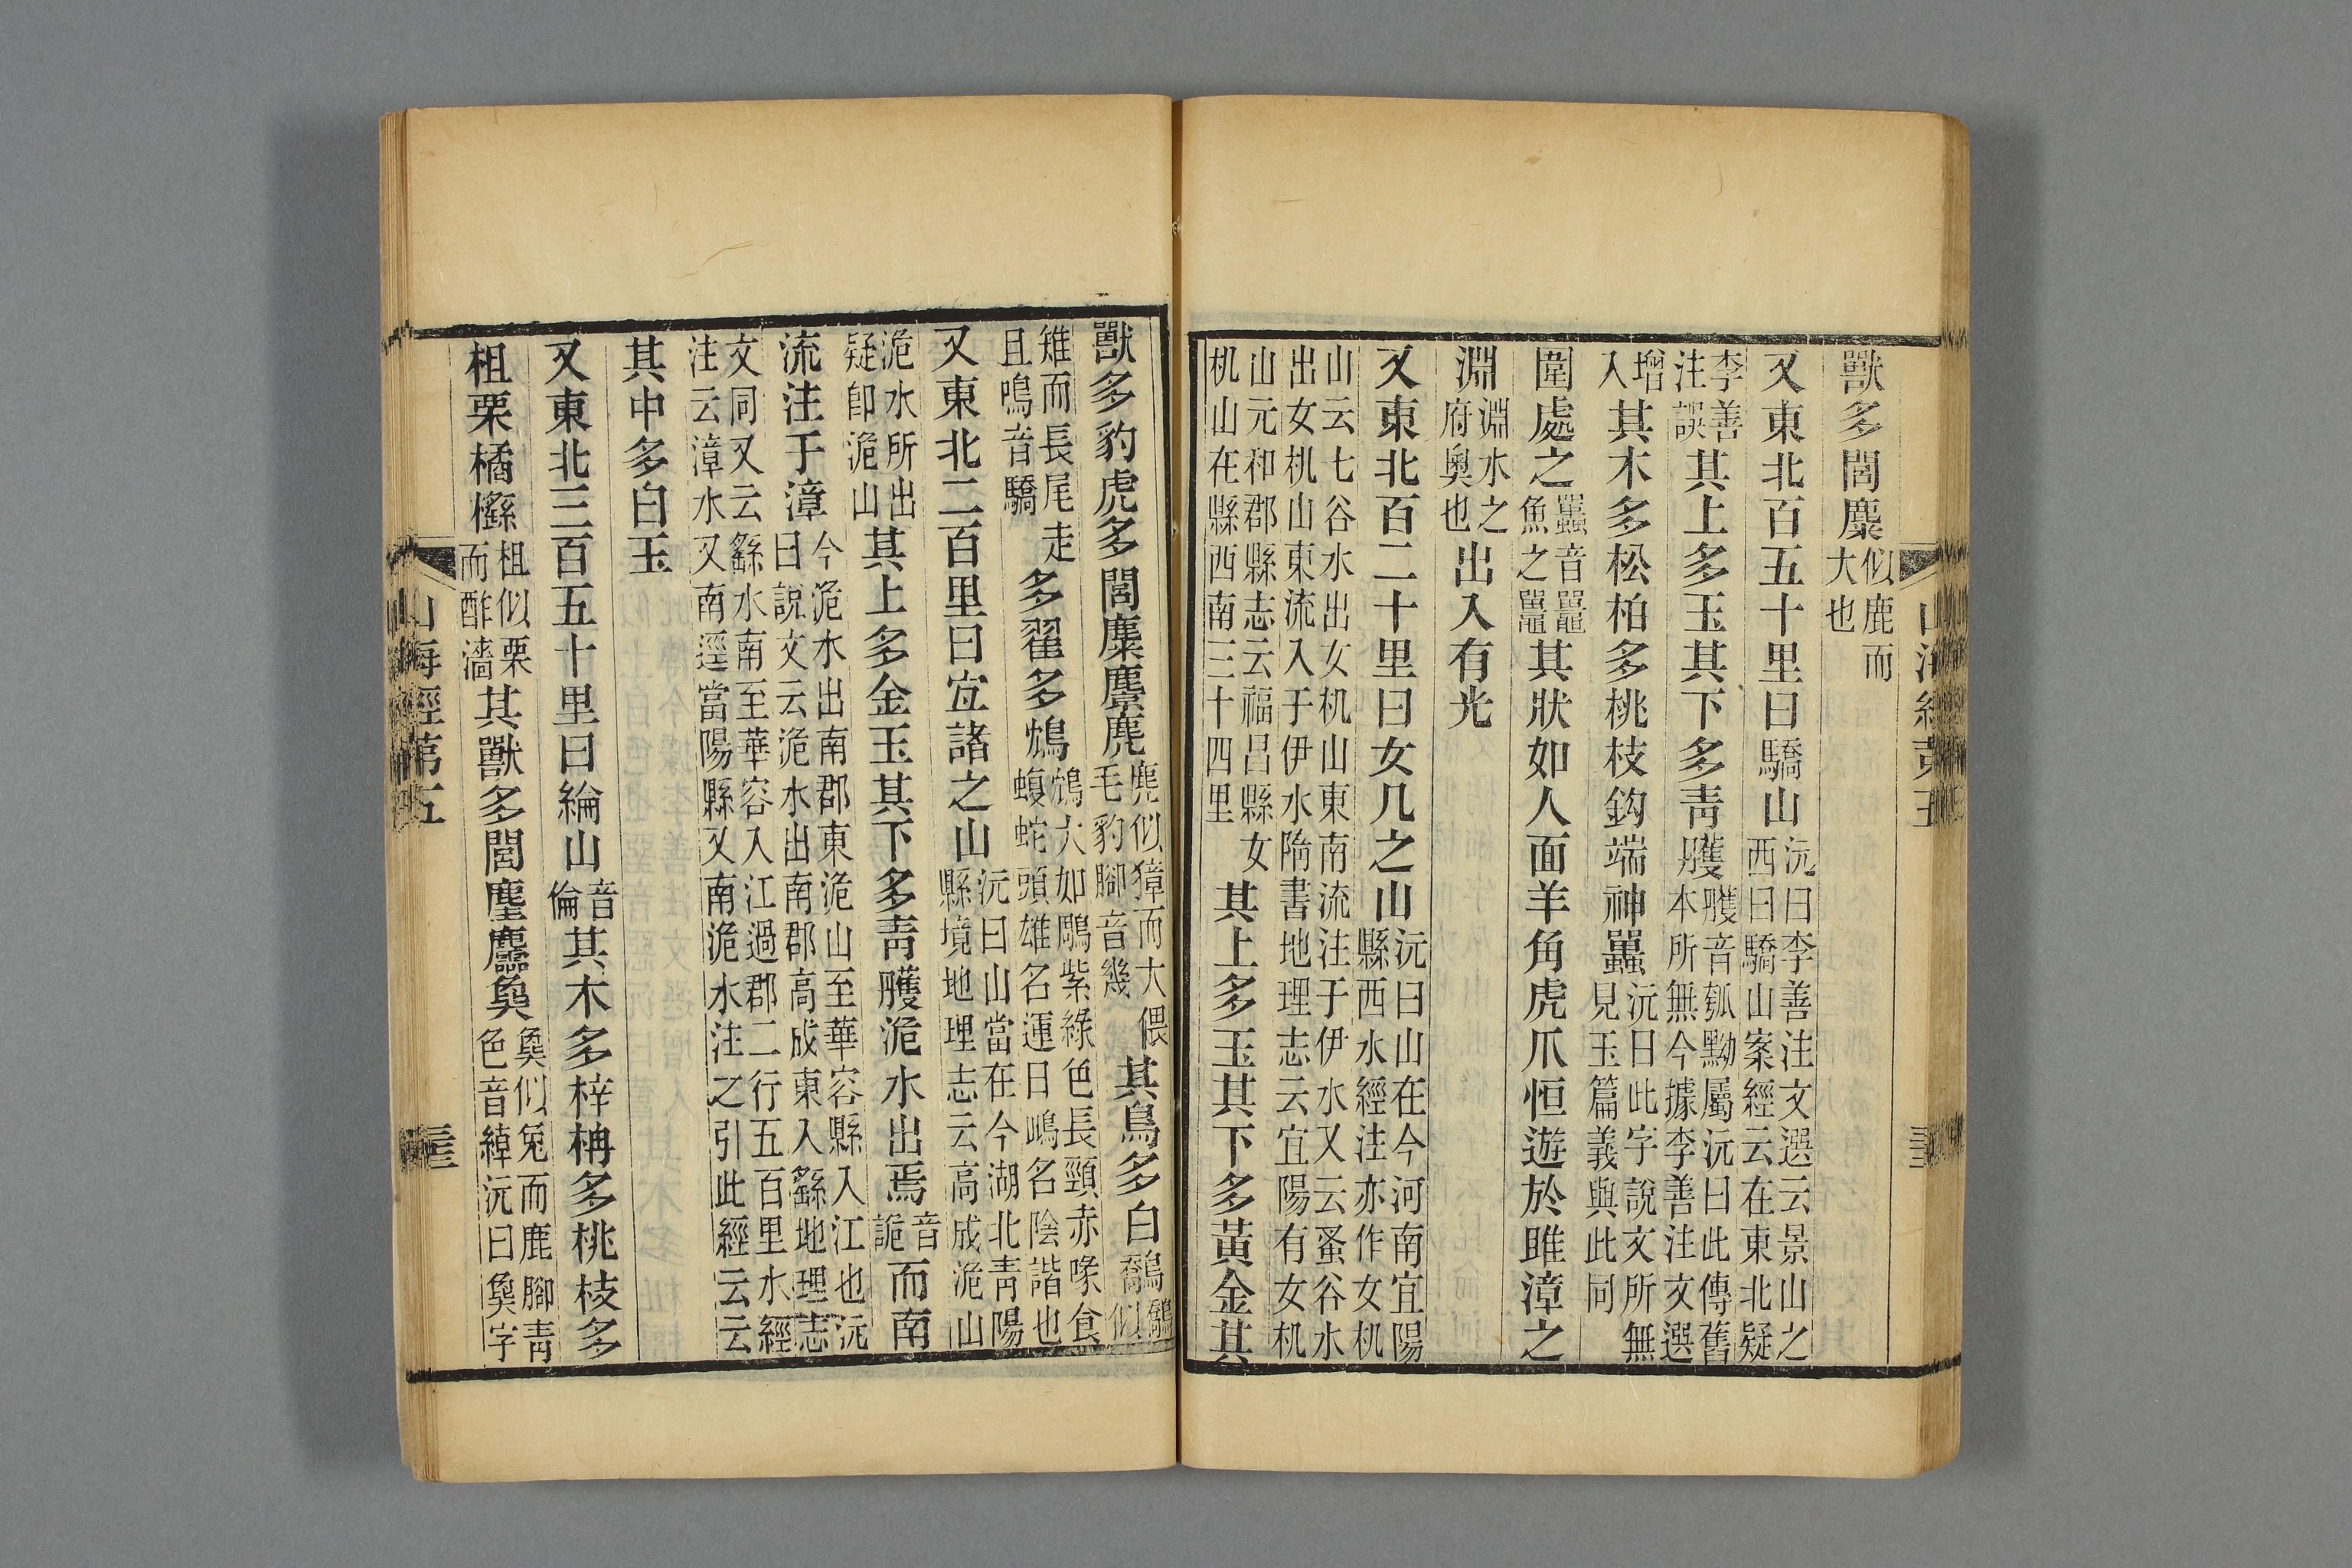 獸多閭麋似鹿而大也
又東北百五十里曰驕山沅曰李善注文選云景山之西曰驕山案經云在東北疑
李善注誤其上多玉其下多青雘雘音瓠黝屬沅曰此傳舊本所無今據李善注文選
增入其木多松柏多桃枝鈎端神䰠沅曰此字說文所無見玉篇義與此同
圍處之䰠音鼉魚之鼉其狀如人面羊角虎爪恒遊於雎漳之
淵淵水之府奧也出入有光
又東北百二十里曰女几之山沅曰山在今河南宜陽縣西水經注亦作女机
山云七谷水出女机山東南流注于伊水又云蚤谷水出女机山東流入于伊水隋書地理志云宜陽有女机
山元和郡縣志云福昌縣女机山在縣西南三十四里其上多玉其下多黃金其
獸多豹虎多閭麋麖麂麂似獐而大偎毛豹腳音幾其鳥多白鷮鷮似
雉而長尾走且鳴音驕多翟多鴆鴆大如鵰紫綠色長頸赤喙食蝮蛇頭雄名運日嶋名陰諧也
又東北二百里曰宜諸之山沅曰山當在今湖北青陽縣境地理志云高成洈山
洈水所出疑即洈山其上多金玉其下多青雘洈水出焉音詭而南
流注于漳今洈水出南郡東洈山至華容縣入江也沅曰說文云洈水出南郡高成東入繇地理志
文同又云繇水南至華容入江過郡二行五百里水經注云漳水又南逕當陽縣又南洈水注之引此經云云
其中多白玉
又東北三百五十里曰綸山音倫其木多梓柟多桃枝多
柤栗橘櫾柤似栗而酢濇其獸多閭麈麢㚟㚟似兔而鹿腳青色音綽沅曰㚟字
山海經第五